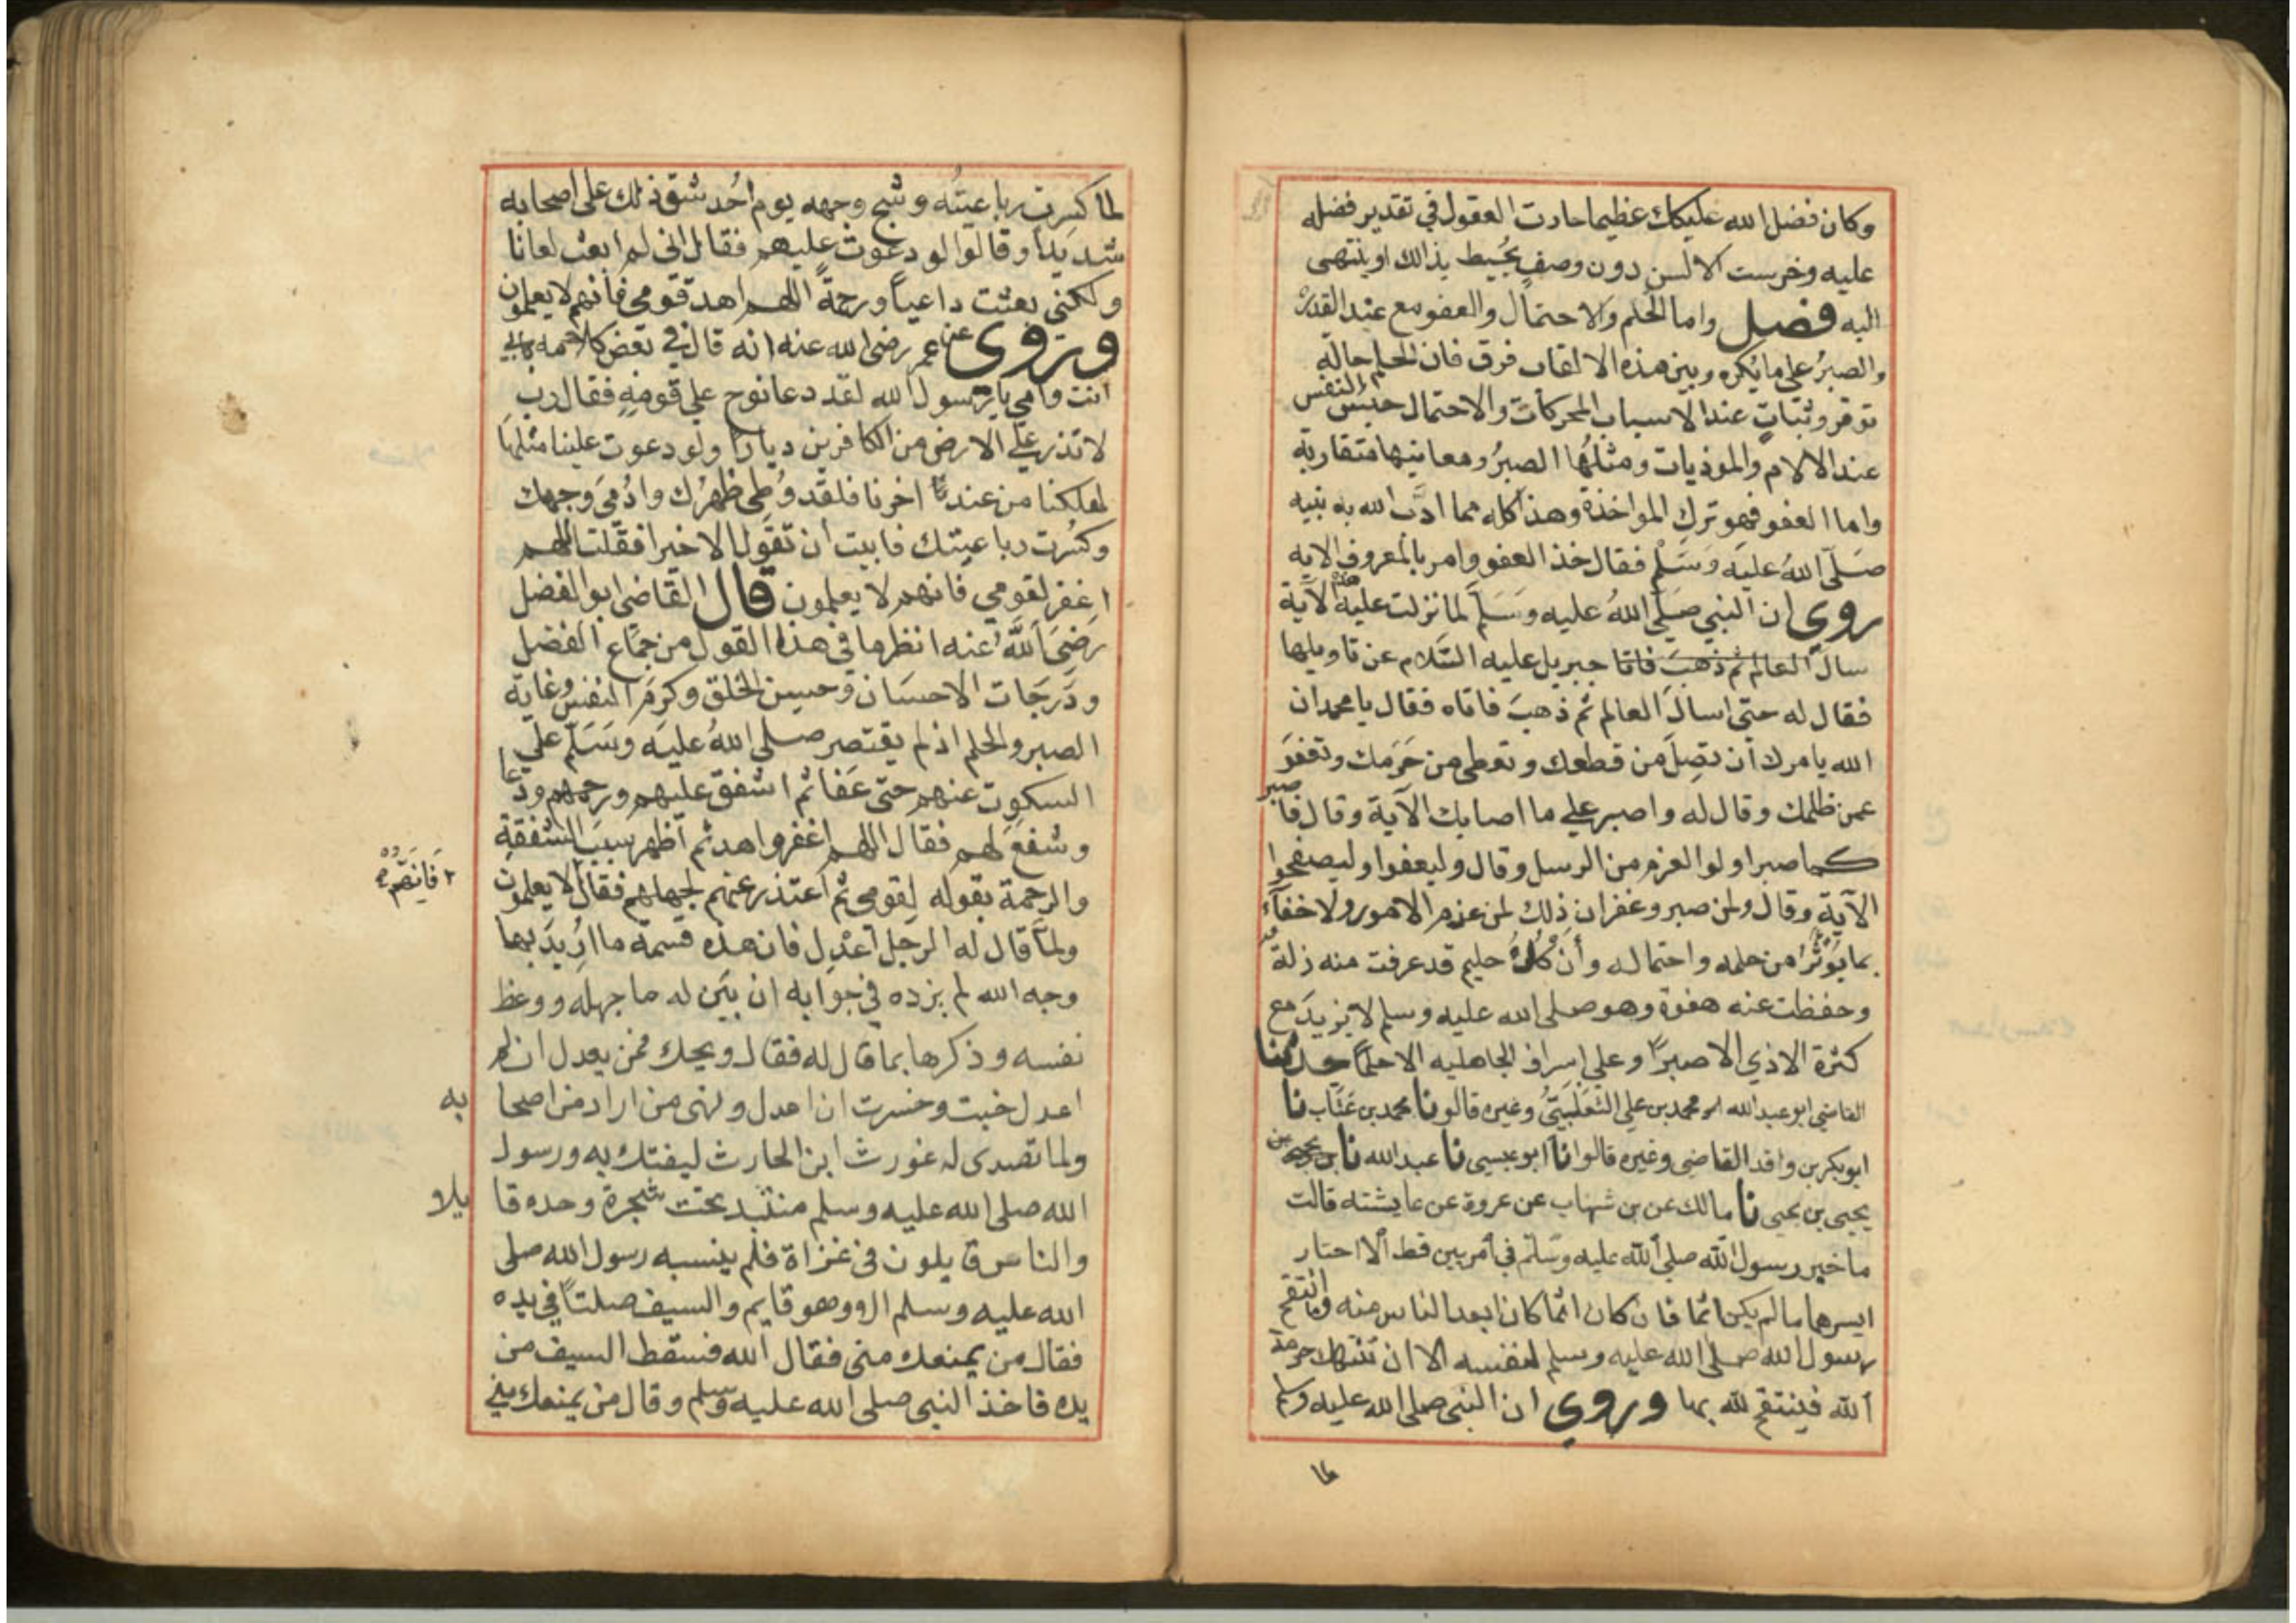 وكان فضل الله عليك عظيما حارت العقول في تقدير فضله
عليه وخرست الالسن دون وصف يحيط بذالك او ينتهى
اليه فصل واما الحلم والاحتمال والعفو مع عند القدرة
والصبرُ على ما يُكره وبين هذه الالقاب فرق فان الحلم حالة
توقر وثباتٍ عند الاسباب المحركات والاحتمال حبس النفس
عند الالام والموذيات ومثلُها الصبرُ ومعانيها متقاربة
واما العفو فهو ترك المواخذة وهذا كله مما ادَّب الله به نبيه
صَلّى اللهُ عليه وَسَلّم فقال خذ العفو وامر بالمعروف الاية
روي ان النبي صَلّى اللهُ عليه وَسَلّم لما نزلت عليه هذه الآية
سال العالم ثم ذهبَ فاتا جبريل عليه السَّلام عن تاويلها
فقال له حتى اسالَ العالم ثم ذهبَ فاتاه فقال يا محمد ان
الله يامرك ان تصِلَ من قطعك وتعطى من حَرَمك وتعفوَ
عمن ظلمك وقال له واصبر على ما اصابك الآية وقال فاصبر
كما صبر اولوا العزم من الرسل وقال وليعفوا وليصفحوا
الآية وقال ولمن صبر وغفر ان ذلك لمن عزم الامور ولا خفآء
بما يُوثَرُ من حلمه واحتماله وأن كلَّ حليم قد عرفت منه زلة
وحفظت عنه هفوة وهو صلى الله عليه وسلم لا يزيد مع
كثرة الاذي الا صبرًا وعلى اسراف الجاهليه الا حلمًا حدثنا
القاضي ابو عبد الله محمد بن علي التَّغلَبيُّ وغيره قالو نا محمد بن عَتَّاب نا
ابو بكر بن واقد القاضى وغيره قالوا نا ابو عيسى نا عبد الله نا
يحيى بن يحيى نا مالك عن بن شهاب عن عروة عن عايشته قالت
ما خير رسول الله صلى الله عليه وسَلّم في أمريين قط الا احتار
ايسرهما ما لم يكن اثما فان كان اثما كان ابعد الناس منه وما انتقم
رسول الله صلى الله عليه وسلم لنفسه الا ان تنتهك حرمة
الله فينتقم لله بها وروي ان النبي صلى الله عليه وسلم
لما
لما كسِرت رباعيتُه وشج وجهه يوم أُحد شق ذلك على اصحابه
شديدًا وقالوا لو دعوتَ عليهم فقال انى لم ابعث لعانا
ولكنى بعثت داعياً ورحمةً اللهم اهد قومى فانهم لا يعلمون
وَروى عن عمر رضى الله عنه انه قال في بعض كلامه بابي
انت وامي يا رسول الله لقد دعا نوح علي قومِهِ فقال رب
لا تذر علي الارض من الكافرين ديارًا ولو دعوت علينا مثلها
لهلكنا من عند اخرنا فلقد وُطِى ظهرُك وادُمىَ وجهك
وكُسرت رباعيتك فابيت ان تقول الا خيرا فقلت اللهم
اغفر لقومي فانهم لا يعلمون قال القاضى ابو الفضل
رَضِىَ اللهُ عنه انظر ما في هذا القول من جمَاع الفضل
ودَرَجات الاحسَان وحسن الخلق وكرم النفس وغاية
الصبر والحلم اذ لم يقتصر صلى اللهُ عليَه وسَلّم علي
السكوت عنهم حتى عَفا ثم اشفق عليهم ورحمهم ودعا
وشفعَ لهم فقال اللهم اغفر واهد ثم اظهر سببَ الشفقة
والرحمة بقوله لِقومى ثم اعتذر عنهم لجهلهم فقال لا يعلمون
٢ فَانِهُّم
ولمّا قال له الرجل اعْدِل فان هذه قسمة ما ارُيدَ بها
وجه الله لم يزده في جوابه ان بيَّن له ما جهله ووعظ
نفسه وذكرها بما قال له فقال ويحك فمن يعدل ان لم
اعدل خبت وخسرت ان اعدل ونهى من اراد من اصحا به
ولما تصدى له غورث ابن الحارث ليفتك به ورسول
الله صلى الله عليه وسلم منتبد تحت شجرة وحده قا يلا
والناس قايلون في غزاة فلم ينسبه رسول الله صلى
الله عليه وسلم الا وهو قايم والسيف صلتًا في يده
فقال من يمنعك منى فقال الله فسقط السيف من
يده فاخذ النبى صلى الله عليه وسلم وقال من يمنعك مني